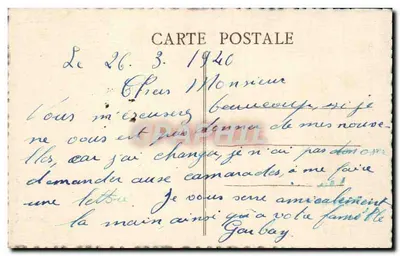 CARTE POSTALE
Le 26. 3. 1940
Cher Monsieur
Vous m'excuserez beaucoup, si je
ne vous ai pas donné de mes nouve-
lles, car j'ai changer, je n'ai pas
demander aux camarades, à me faire
une lettre. Je vous serre amicalement
la main ainsi qu'a votre famille
Garbay.